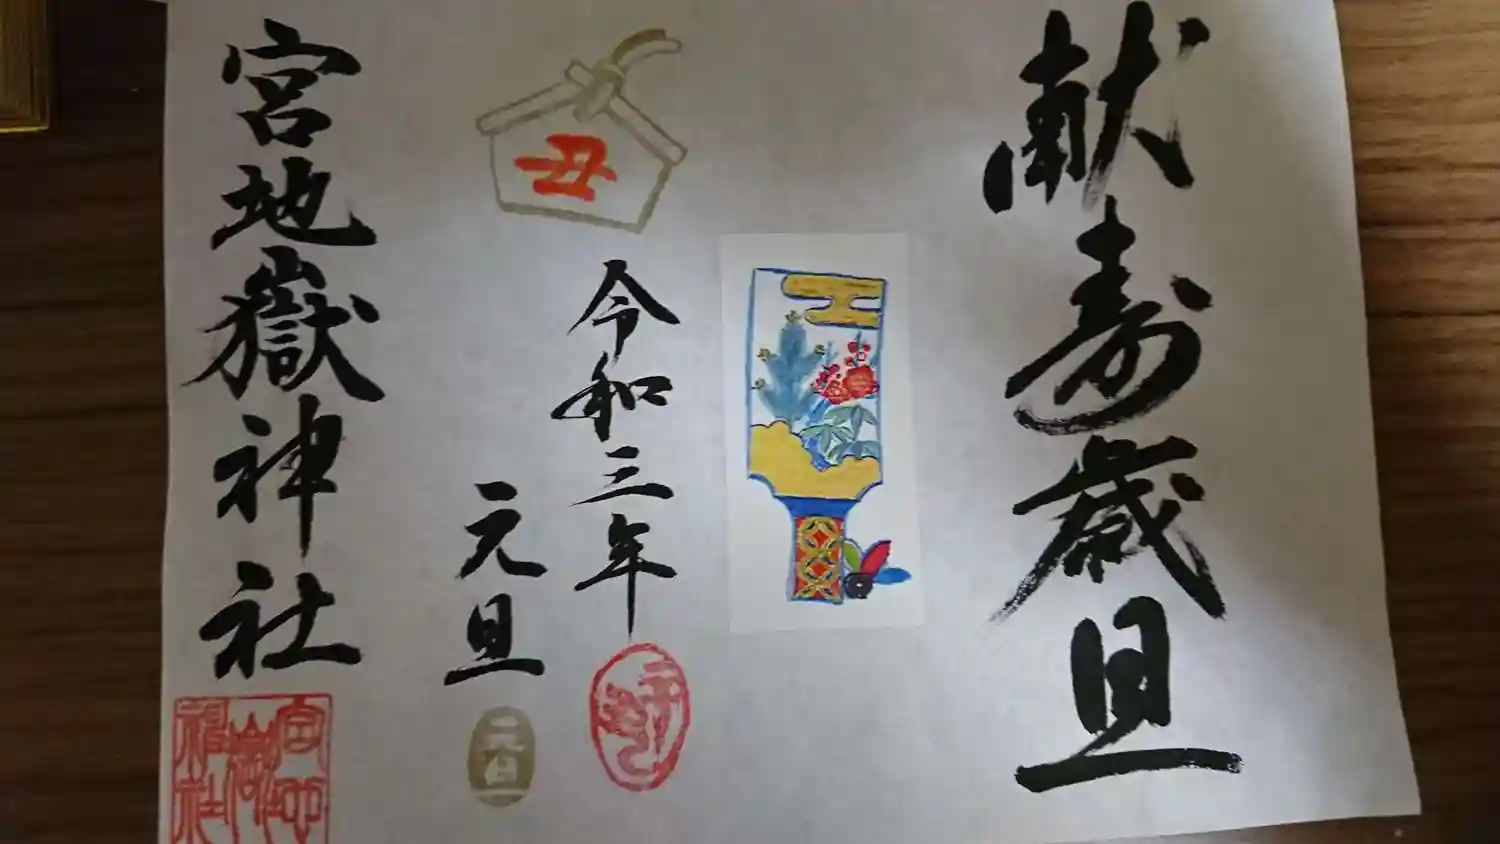 献寿歳旦
丑
令和三年
元旦
元旦
宮地嶽神社
宮地嶽神社